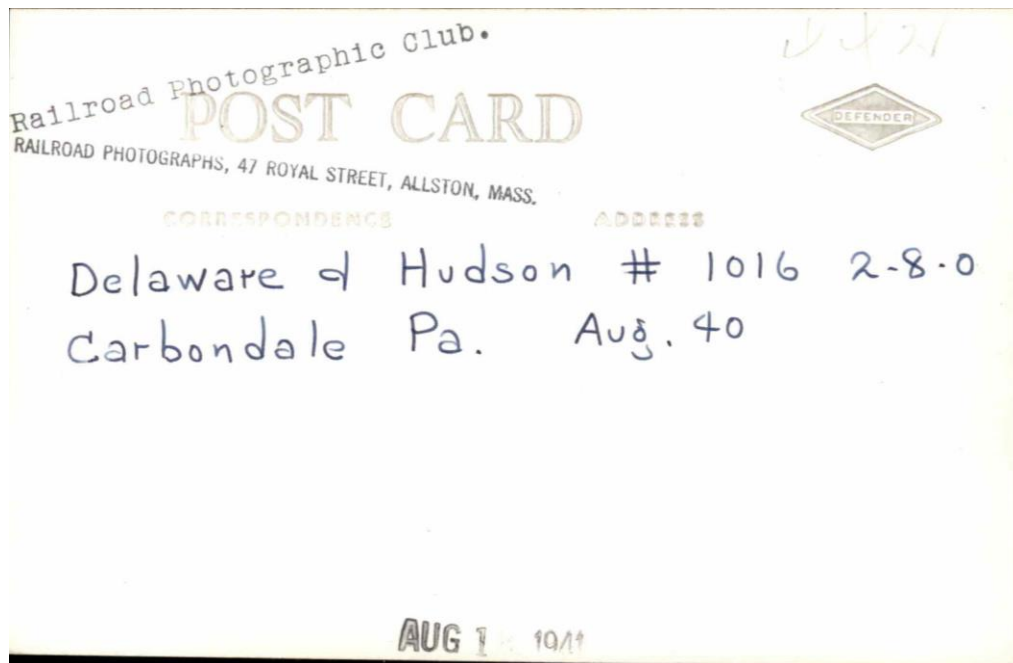 Railroad Photographic Club.
POST CARD
DEFENDER
RAILROAD PHOTOGRAPHS, 47 ROYAL STREET, ALLSTON, MASS.
CORRESPONDENCE ADDRESS
Delaware & Hudson # 1016 2-8-0
Carbondale Pa. Aug. 40
AUG 1 1941